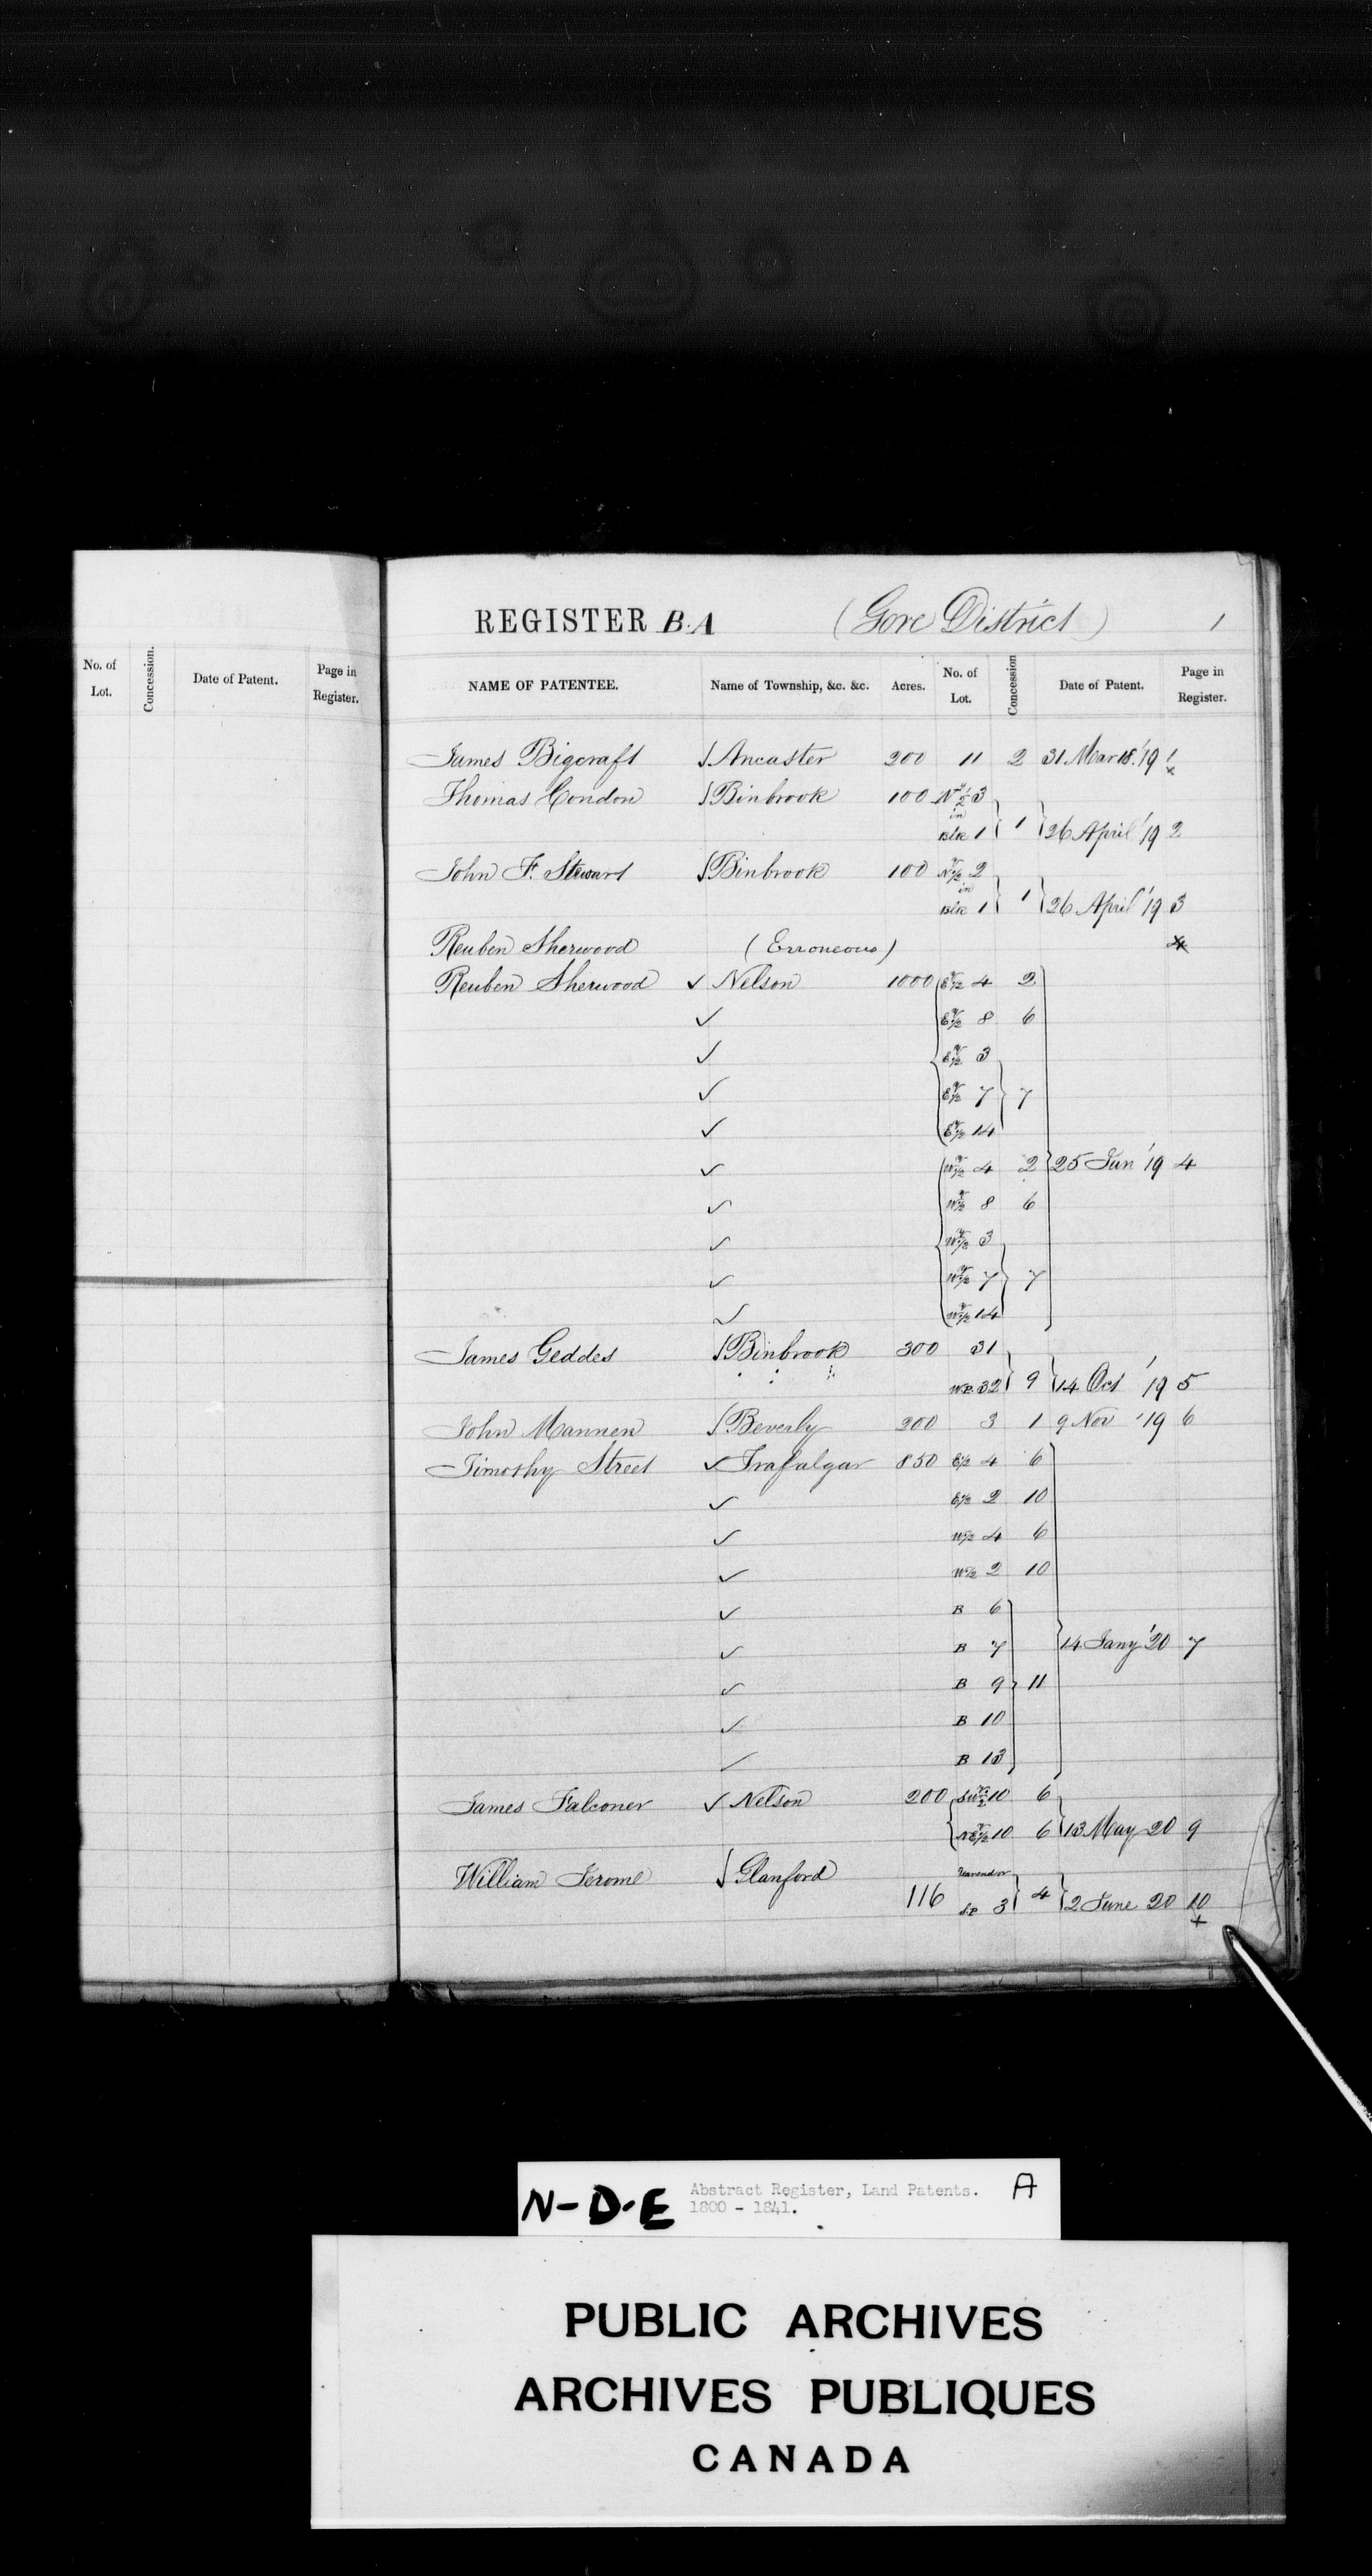 No. of Lot. Concession. Date of Patent. Page in Register.
REGISTER B.A (Gore District) 1
NAME OF PATENTEE. Name of Township, &c. &c. Acres. No. of Lot. Concession Date of Patent. Page in Register.
James Bigcraft Ancaster 200 11 2 31 Mar 18.'19 1
x
Thomas Condon Binbrook 100 N 1/2 3
in
Blk 1 1 26 April '19 2
John F. Stewart Binbrook 100 N 1/2 2
in
Blk 1 1 26 April '19 3
Reuben Sherwood (Erroneous) 4
Reuben Sherwood ✓ Nelson 1000 E 1/2 4 2
✓ E 1/2 8 6
✓ E 1/2 3
✓ E 1/2 7 7
✓ E 1/2 14
✓ W 1/2 4 2 25 Jun '19 4
✓ W 1/2 8 6
✓ W 1/2 3
✓ W 1/2 7 7
✓ W 1/2 14
James Geddes Binbrook 300 31
32 9 14 Oct '19 5
John Mannen Beverly 200 3 1 9 Nov '19 6
Timothy Street ✓ Trafalgar 850 E 1/2 4 6
✓ E 1/2 2 10
✓ W 1/2 4 6
✓ W 1/2 2 10
✓ B 6
✓ B 7 14 Jany '20 7
✓ B 9 11
✓ B 10
✓ B 13
James Falconer ✓ Nelson 200 SW 1/2 10 6
NE 1/2 10 6 13 May 20 9
William Jerome Glanford
116 3 4 2 June 20 10
+
N-D-E Abstract Register, Land Patents. A
1800 - 1841.
PUBLIC ARCHIVES
ARCHIVES PUBLIQUES
CANADA